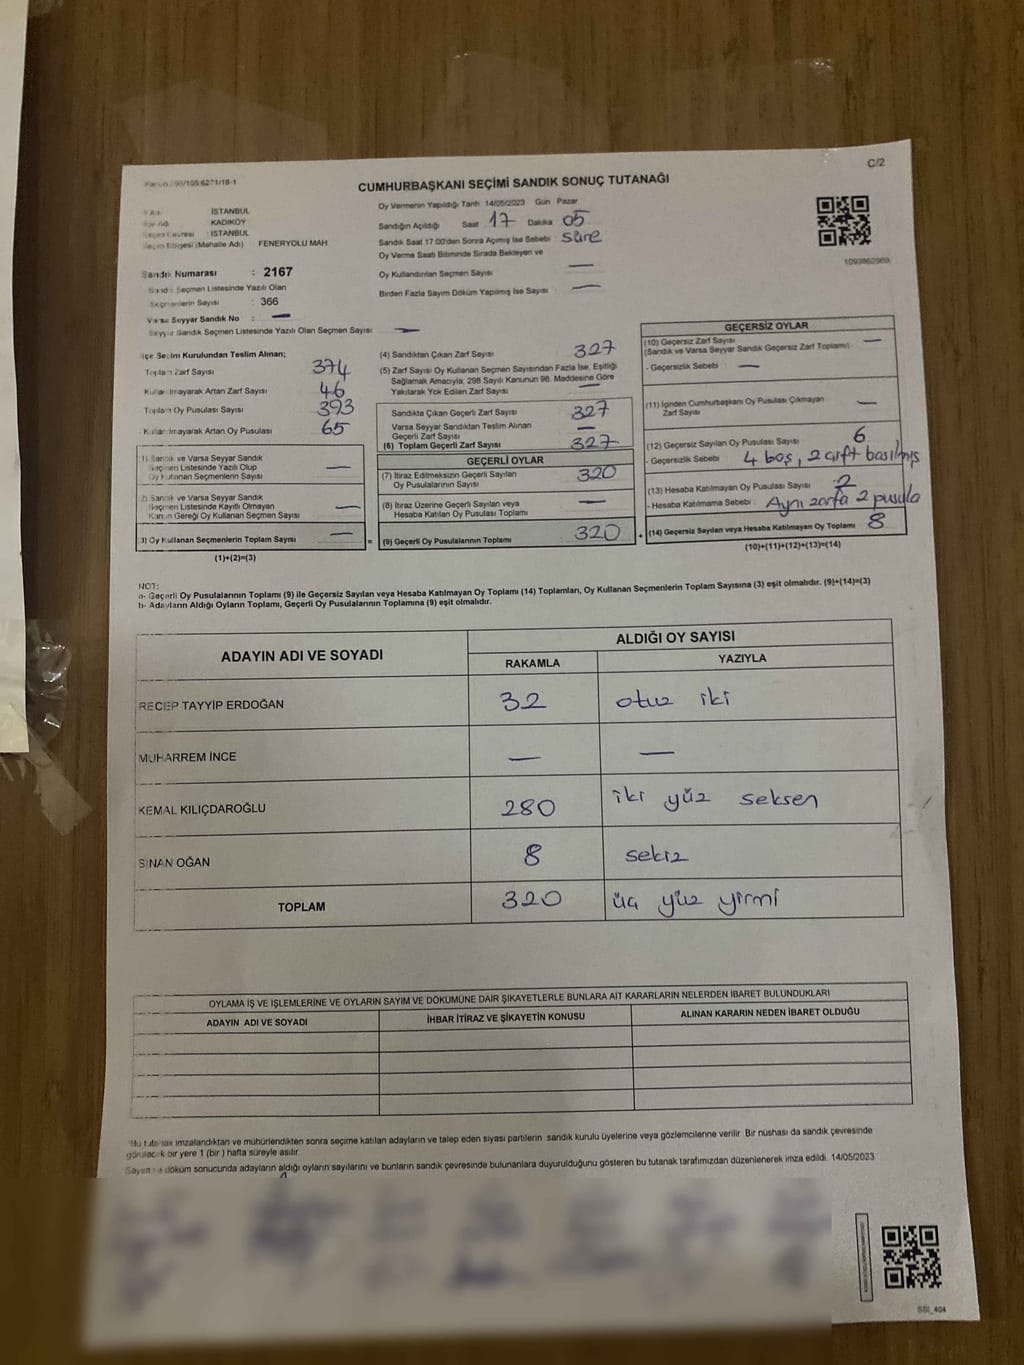 C/2
CUMHURBAŞKANI SEÇİMİ SANDIK SONUÇ TUTANAĞI
İSTANBUL
KADIKÖY
Seçim Çevresi : İSTANBUL
Seçim Bölgesi (Mahalle Adı) FENERYOLU MAH
Sandık Numarası : 2167
Sandık Seçmen Listesinde Yazılı Olan
Seçmenlerin Sayısı : 366
Varsa Seyyar Sandık No : —
Seyyar Sandık Seçmen Listesinde Yazılı Olan Seçmen Sayısı —
Oy Vermenin Yapıldığı Tarih 14/05/2023 Gün Pazar
Sandığın Açıldığı Saat 17 Dakika 05
Sandık Saat 17:00'den Sonra Açımış İse Sebebi süre
Oy Verme Saati Bitiminde Sırada Bekleyen ve
Oy Kullandırılan Seçmen Sayısı —
Birden Fazla Sayım Döküm Yapılmış İse Sayısı —
1093862969
İlçe Seçim Kurulundan Teslim Alınan;
Toplam Zarf Sayısı 374
Kullanılmayarak Artan Zarf Sayısı 46
Toplam Oy Pusulası Sayısı 393
Kullanılmayarak Artan Oy Pusulası 65
1) Sandık ve Varsa Seyyar Sandık
Seçmen Listesinde Yazılı Olup
Oy Kullanan Seçmenlerin Sayısı —
2) Sandık ve Varsa Seyyar Sandık
Seçmen Listesinde Kayıtlı Olmayan
Kanun Gereği Oy Kullanan Seçmen Sayısı —
3) Oy Kullanan Seçmenlerin Toplam Sayısı — =
(1)+(2)=(3)
(4) Sandıktan Çıkan Zarf Sayısı 327
(5) Zarf Sayısı Oy Kullanan Seçmen Sayısından Fazla İse, Eşitliği
Sağlamak Amacıyla; 298 Sayılı Kanunun 98. Maddesine Göre
Yakılarak Yok Edilen Zarf Sayısı —
Sandıkta Çıkan Geçerli Zarf Sayısı 327
Varsa Seyyar Sandıktan Teslim Alınan
Geçerli Zarf Sayısı —
(6) Toplam Geçerli Zarf Sayısı 327
GEÇERLİ OYLAR
(7) İtiraz Edilmeksizin Geçerli Sayılan
Oy Pusulalarının Sayısı 320
(8) İtiraz Üzerine Geçerli Sayılan veya
Hesaba Katılan Oy Pusulası Toplamı —
(9) Geçerli Oy Pusulalarının Toplamı 320 +
GEÇERSİZ OYLAR
(10) Geçersiz Zarf Sayısı
(Sandık ve Varsa Seyyar Sandık Geçersiz Zarf Toplamı) —
- Geçersizlik Sebebi —
(11) İçinden Cumhurbaşkanı Oy Pusulası Çıkmayan
Zarf Sayısı —
(12) Geçersiz Sayılan Oy Pusulası Sayısı 6
- Geçersizlik Sebebi 4 boş, 2 çift basılmış
(13) Hesaba Katılmayan Oy Pusulası Sayısı 2
- Hesaba Katılmama Sebebi Aynı zarfa 2 pusula
(14) Geçersiz Sayılan veya Hesaba Katılmayan Oy Toplamı 8
(10)+(11)+(12)+(13)=(14)
NOT:
a- Geçerli Oy Pusulalarının Toplamı (9) ile Geçersiz Sayılan veya Hesaba Katılmayan Oy Toplamı (14) Toplamları, Oy Kullanan Seçmenlerin Toplam Sayısına (3) eşit olmalıdır. (9)+(14)=(3)
b- Adayların Aldığı Oyların Toplamı, Geçerli Oy Pusulalarının Toplamına (9) eşit olmalıdır.
ADAYIN ADI VE SOYADI
ALDIĞI OY SAYISI
RAKAMLA YAZIYLA
RECEP TAYYİP ERDOĞAN 32 otuz iki
MUHARREM İNCE — —
KEMAL KILIÇDAROĞLU 280 iki yüz seksen
SİNAN OĞAN 8 sekiz
TOPLAM 320 üç yüz yirmi
OYLAMA İŞ VE İŞLEMLERİNE VE OYLARIN SAYIM VE DÖKÜMÜNE DAİR ŞİKAYETLERLE BUNLARA AİT KARARLARIN NELERDEN İBARET BULUNDUKLARI
ADAYIN ADI VE SOYADI İHBAR İTİRAZ VE ŞİKAYETİN KONUSU ALINAN KARARIN NEDEN İBARET OLDUĞU
*Bu tutanak imzalandıktan ve mühürlendikten sonra seçime katılan adayların ve talep eden siyasi partilerin sandık kurulu üyelerine veya gözlemcilerine verilir. Bir nüshası da sandık çevresinde
görülecek bir yere 1 (bir) hafta süreyle asılır.
Sayım ve döküm sonucunda adayların aldığı oyların sayılarını ve bunların sandık çevresinde bulunanlara duyurulduğunu gösteren bu tutanak tarafımızdan düzenlenerek imza edildi. 14/05/2023